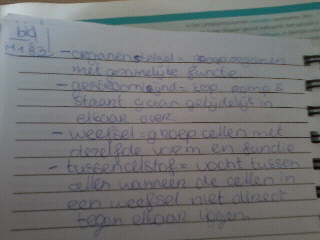 bio
H1 &2
- organenstelsel = groep organen
met gezamelijke functie
- gestroomlijnd = kop, romp &
staart gaan geleidelijk in
elkaar over
- weefsel = groep cellen met
dezelfde vorm en functie
- tussencelstof = vocht tussen
cellen wanneer de cellen in
een weefsel niet direct
tegen elkaar liggen.